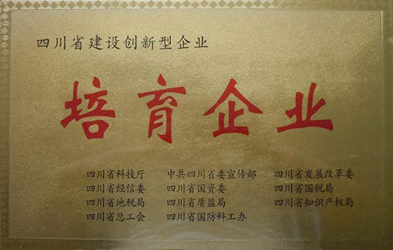 四川省建设创新型企业
培育企业
四川省科技厅 中共四川省委宣传部 四川省发展改革委
四川省经信委 四川省国资委 四川省国税局
四川省地税局 四川省质监局 四川省知识产权局
四川省总工会 四川省国防科工办